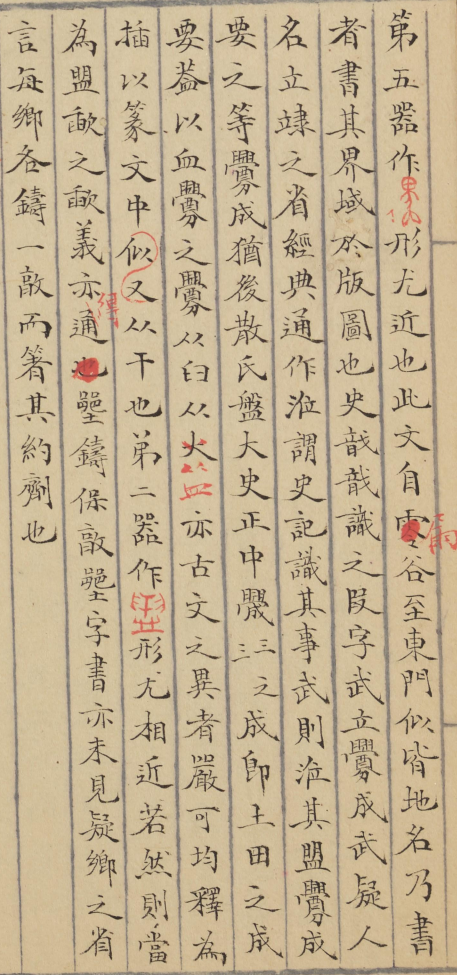 第五器作形尤近也此文自雩谷至東門似皆地名乃書
者書其界域於版圖也史戠戠識之叚字武立釁成武疑人
名立䇐之省經典通作涖謂史記識其事武則涖其盟釁成
要之等釁成猶後散氏盤大史正中釁三三之成卽土田之成
要葢以血釁之釁从臼从火从血亦古文之異者嚴可均釋為
插以篆文中似又从干也第二器作形尤相近若然則當
為盟歃之歃義亦通也壆鑄保敵壆字書亦未見疑鄉之省
言每鄉各鑄一敵而箸其約劑也